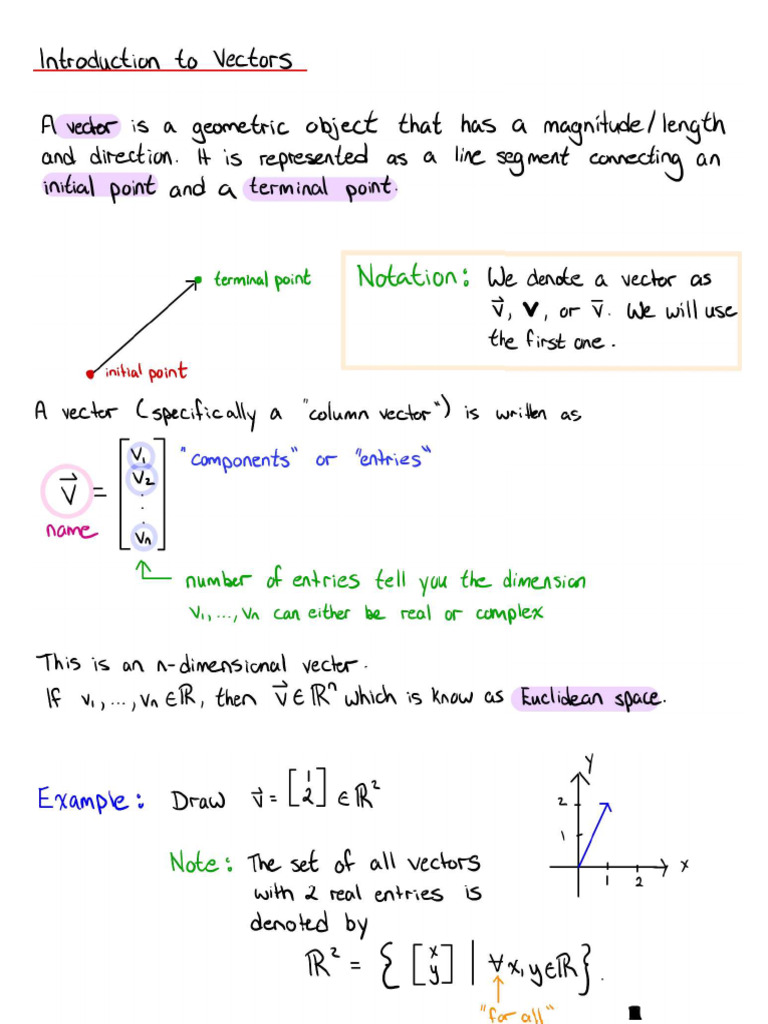 Introduction to Vectors
A vector is a geometric object that has a magnitude/length
and direction. It is represented as a line segment connecting an
initial point and a terminal point.
terminal point
initial point
Notation: We denote a vector as
v⃗, 𝐯, or v̅. We will use
the first one.
A vector (specifically a "column vector") is written as
v⃗ = [v₁ v₂ . . vₙ] "components" or "entries"
name
number of entries tell you the dimension
v₁, ..., vₙ can either be real or complex
This is an n-dimensional vector.
If v₁, ..., vₙ ∈ ℝ, then v⃗ ∈ ℝⁿ which is know as Euclidean space.
Example: Draw v⃗ = [1 2] ∈ ℝ²
y
2
1
x
1 2
Note: The set of all vectors
with 2 real entries is
denoted by
ℝ² = { [x y] | ∀ x, y ∈ ℝ }.
"for all"